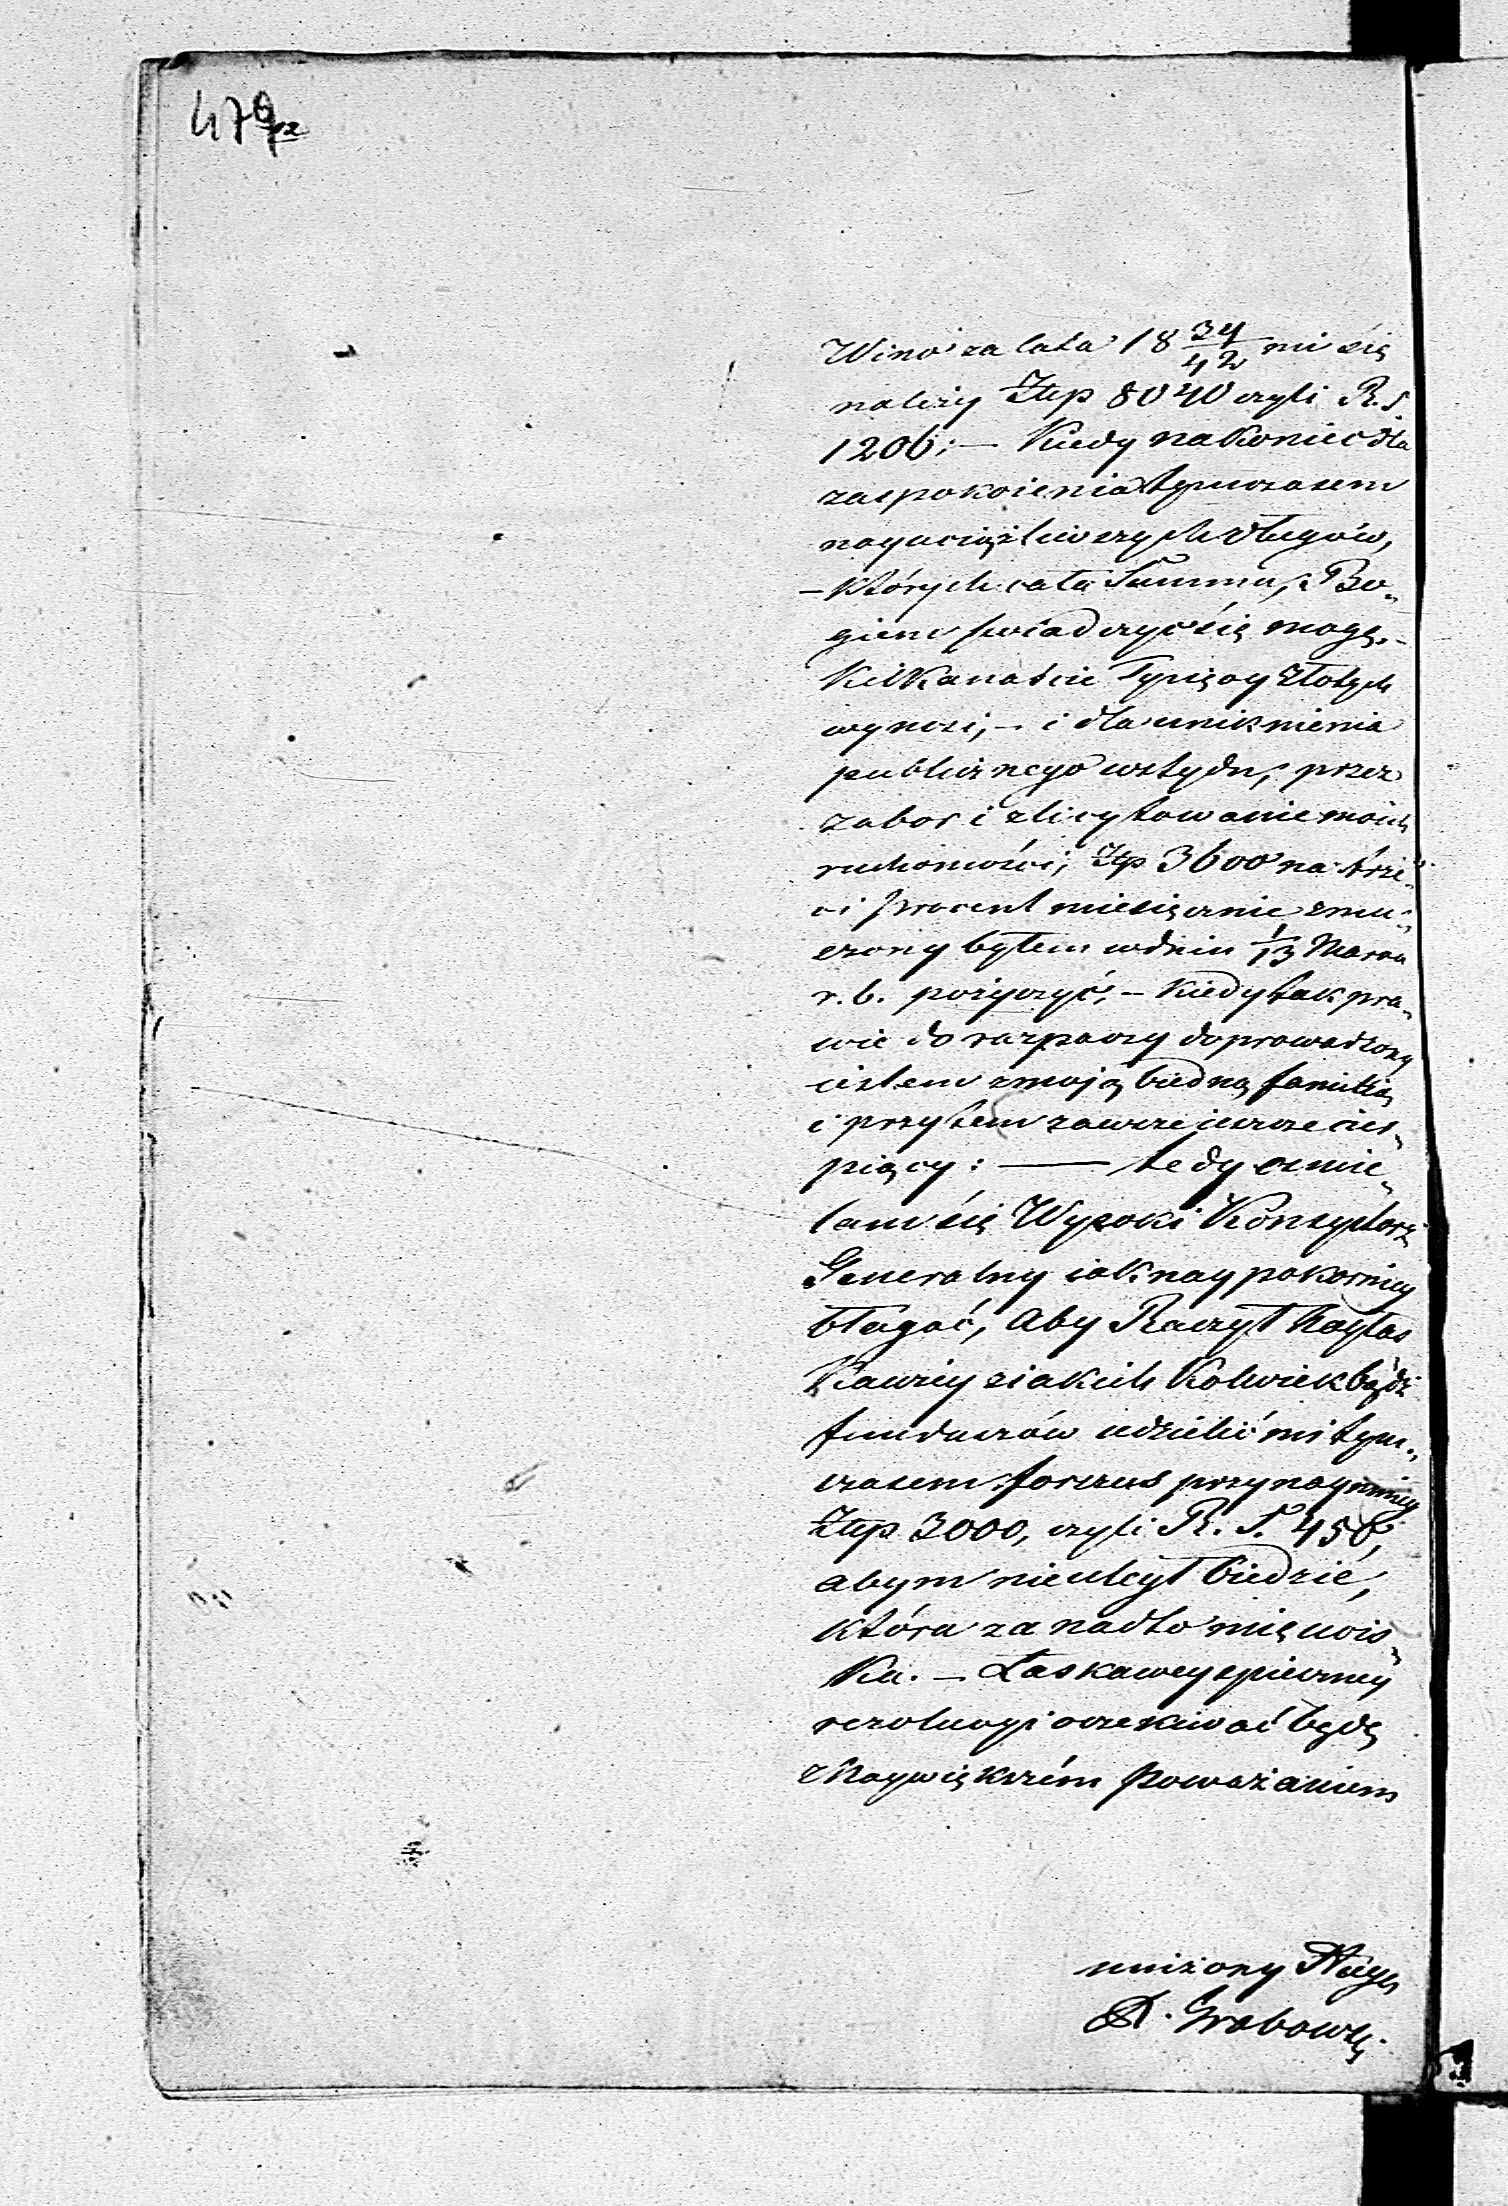 Wino za lata 18 34/42 mi się
należy Złp 8040 czyli R. S.
1206; — Kiedy nakoniec dla
zaspokoienia tymczasem
nayuciążliwszych długów,
— których cała Summa, Bo-
giem świadczyć się mogę, —
kilkanaście Tysięcy Złotych
wynosi, — i dla uniknienia
publicznego wstydu, przez
zabor i zlicytowanie moich
ruchomości, Złp 3600 na trze-
ci procent miesięcznie zmu-
szony byłem w dniu 1/13 Marca
r. b. pożyczyć, — kiedy tak pra-
wie do rozpaczy doprowadzony
iestem z moją biedną familią
i przytem zawsze ieszcze cier-
piący: — tedy ośmie-
lam się Wysoki Konsystorz
Generalny iak naypokorniey
błagać, aby Raczył Nayłas-
kawiey z iakich kolwiek bądź
funduszów udzielić mi tym-
czasem forszus przynaymniey
Złp 3000, czyli R. S. 450,
abym nie uległ biedzie,
która za nadto mię ucis-
ka. — Łaskawey spieszney
rezolucyi oczekiwać będę
z Naywiększém Poważaniem
uniżony Sługa
Grabowski